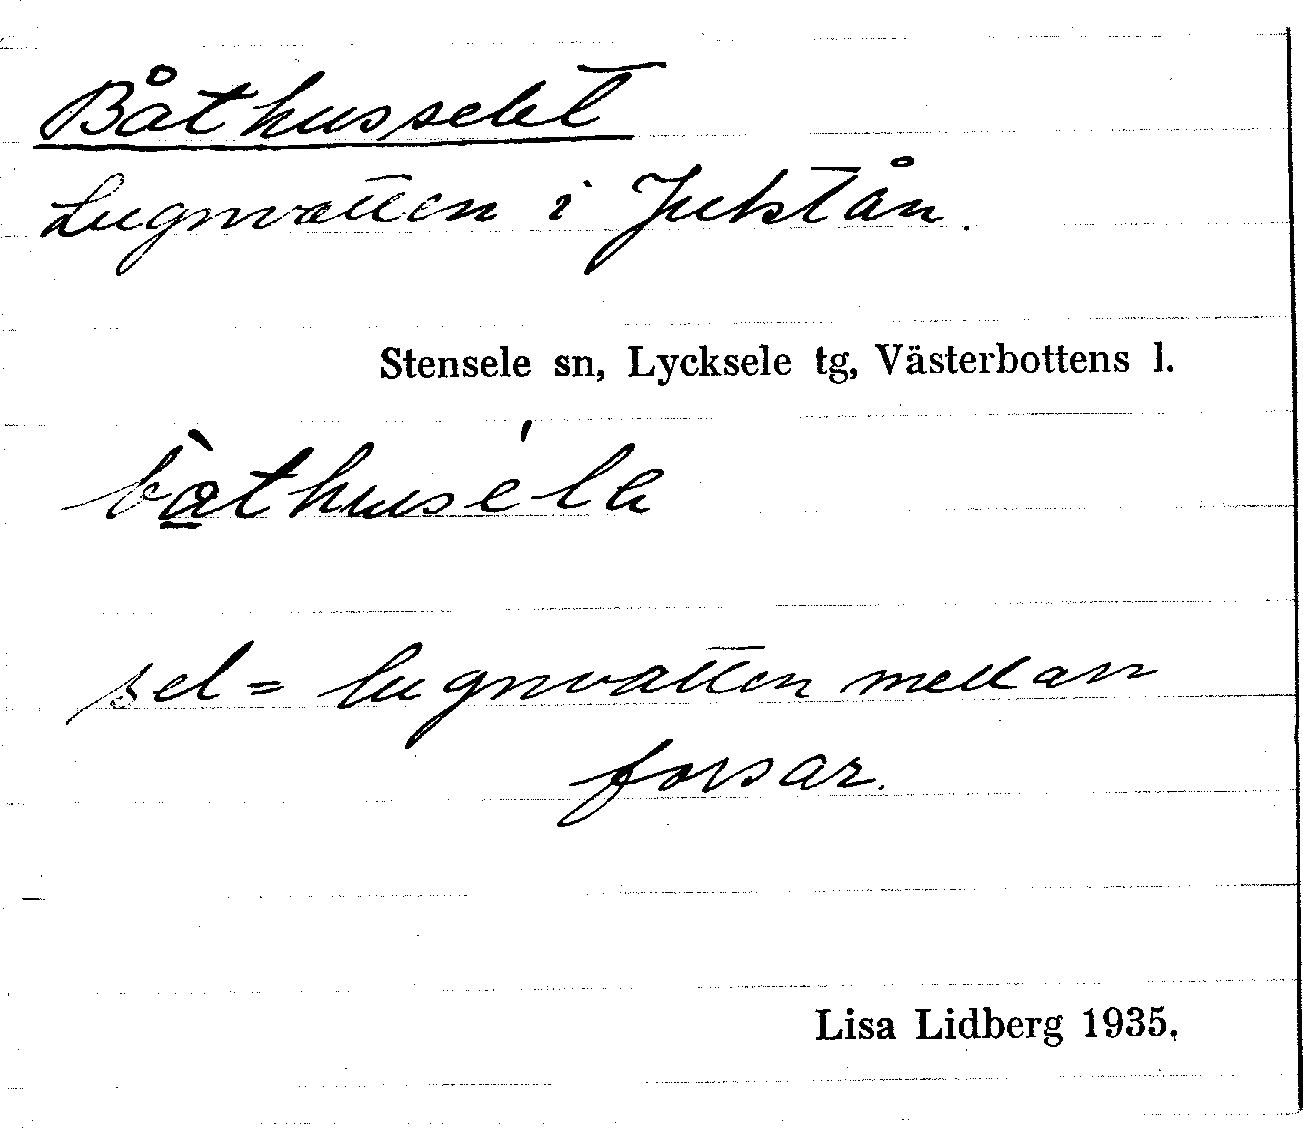 Båthusselet
Lugnvatten i Juktån.
Stensele sn, Lycksele tg, Västerbottens l.
bå̲thuséla
sel = lugnvatten mellan
forsar.
Lisa Lidberg 1935.